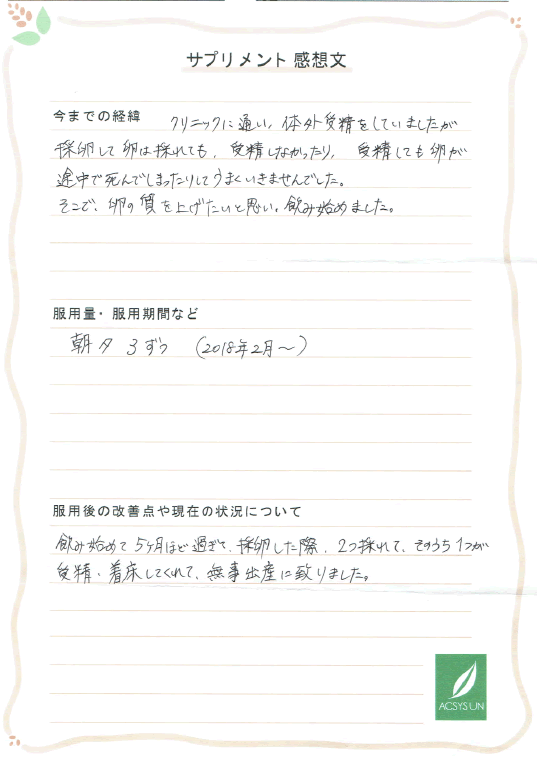 サプリメント 感想文
今までの経緯 クリニックに通い、体外受精をしていましたが
採卵して卵は採れても、受精しなかったり、受精しても卵が
途中で死んでしまったりしてうまくいきませんでした。
そこで、卵の質を上げたいと思い、飲み始めました。
服用量・服用期間など
朝夕 3ずつ (2018年2月〜)
服用後の改善点や現在の状況について
飲み始めて5ヶ月ほど過ぎて、採卵した際、2つ採れて、そのうち1つが
受精、着床してくれて、無事出産に致りました。
ACSYSUN